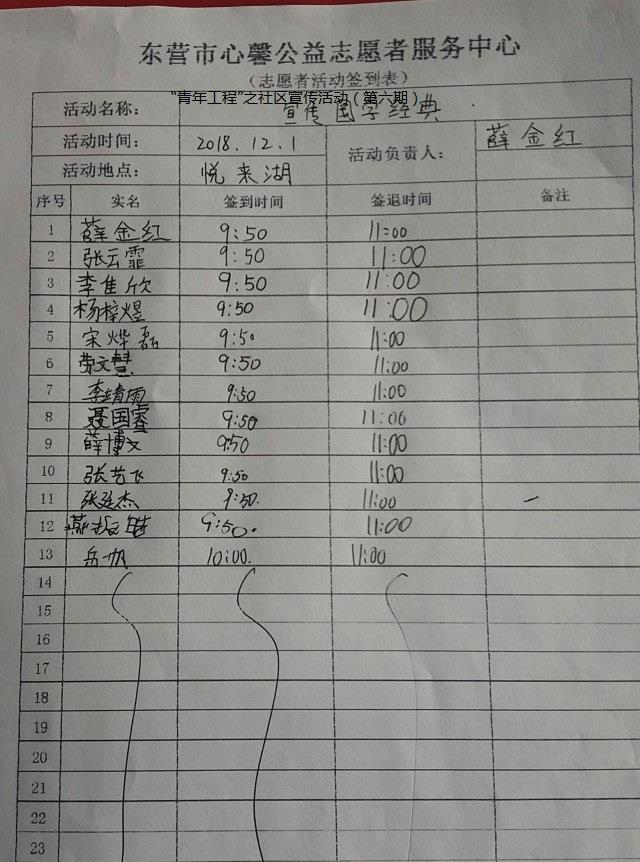 东营市心馨公益志愿者服务中心
(志愿者活动签到表)
“青年工程”之社区宣传活动（第六期）
活动名称: 宣传国学经典
活动时间: 2018.12.1 活动负责人: 薛金红
活动地点: 悦来湖
序号 实名 签到时间 签退时间 备注
1 薛金红 9:50 11:00
2 张云霏 9:50 11:00
3 李佳欣 9:50 11:00
4 杨梓煜 9:50 11:00
5 宋烨磊 9:50 11:00
6 荣文慧 9:50 11:00
7 李靖雨 9:50 11:00
8 聂国睿 9:50 11:00
9 薛博文 9:50 11:00
10 张艺飞 9:50 11:00
11 张廷杰 9:50. 11:00
12 9:50. 11:00
13 岳一帆 10:00. 11:00
14
15
16
17
18
19
20
21
22
23